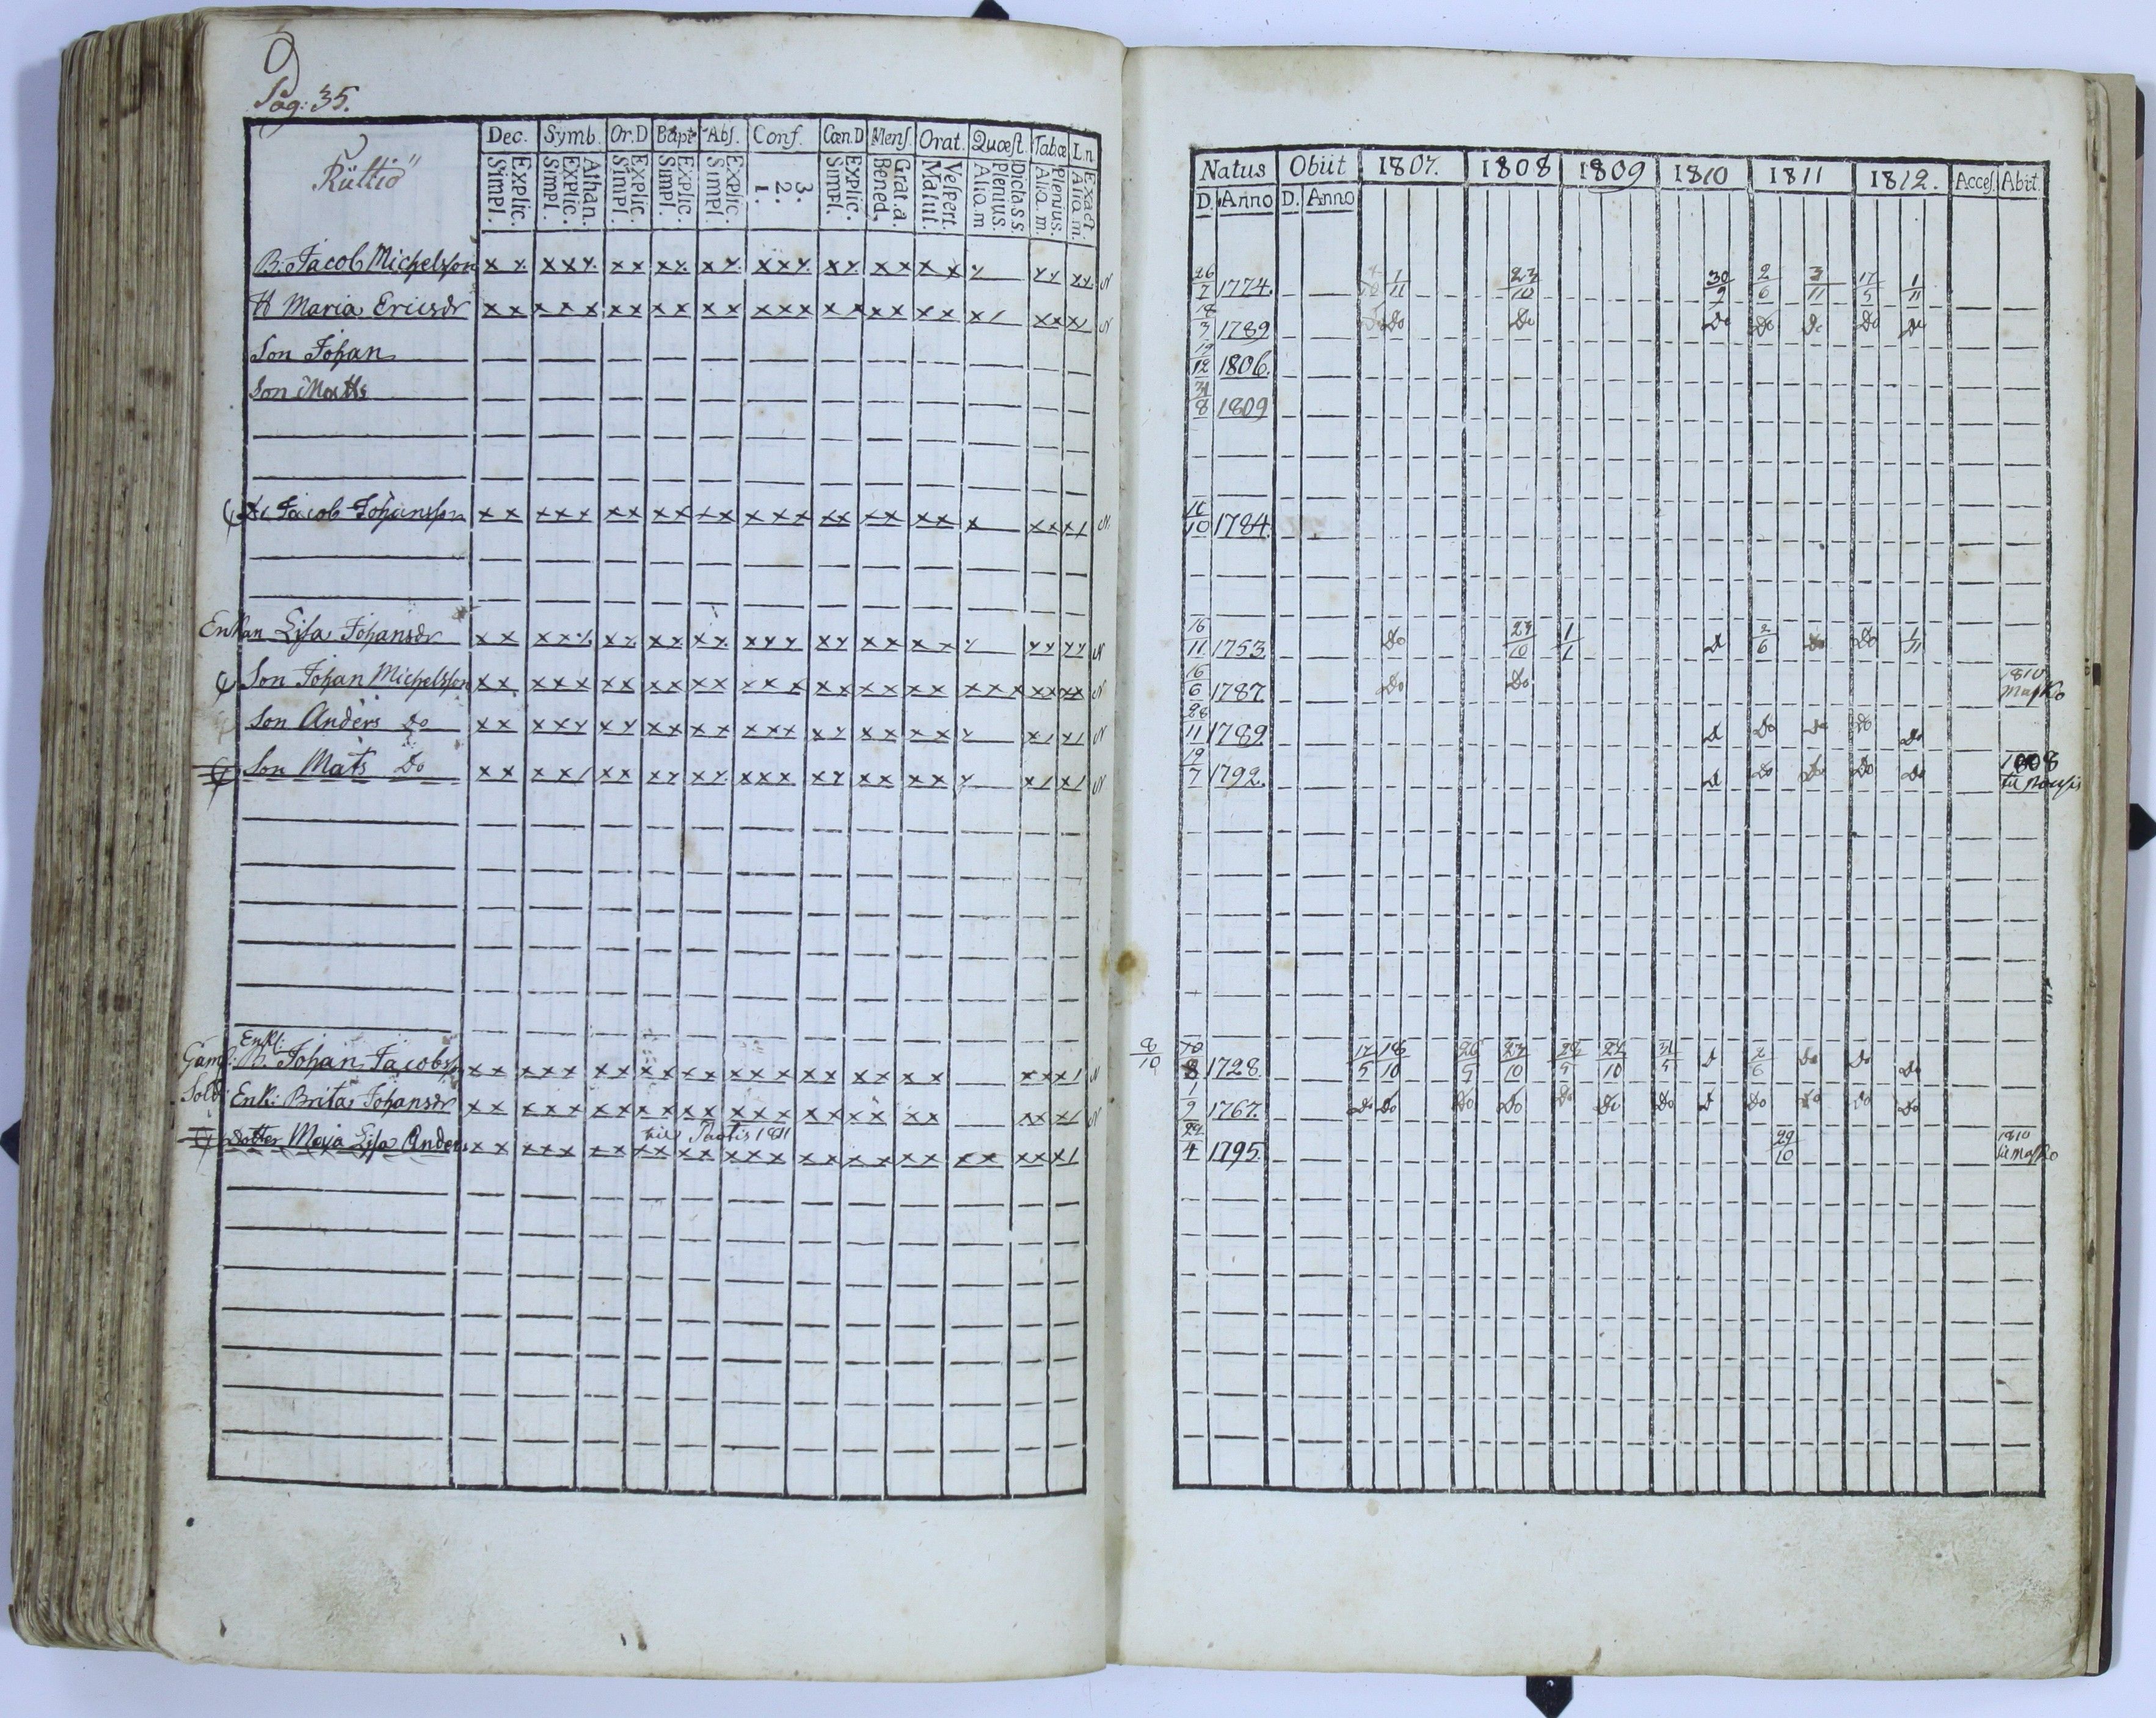 Pag: 35.
Küttiö
Dec. Symb. Or.D Bapt Abs. Conf. Cœn.D Mens. Orat. Quæst Tabæ L.n
Simpl. Explic. Simpl. Explic. Athan. Simpl. Explic. Simpl. Explic. Simpl. Explic. 1. 2. 3. Simpl. Explic. Bened. Grat.a. Matut. Vespert. Alio.m Plenius. Dicta.s.s. Alio.m. Plenius. Alio.m. Exact.
Natus Obiit 1807. 1808 1809 1810 1811 1812. Acces. Abiit.
D. Anno D. Anno
B. Jacob Michelsson x x x x x x x x x x x x x x x x x x x 26/7 1774. 1/11 23/10 30/9 2/6 3/11 17/5 1/11
H Maria Ericsdr x x x x x x x x x x x x x x x x x x 18/3 1789 Do Do Do Do Do Do Do
Son Johan 19/12 1806.
Son Matts 31/8 1809
Jacob Johansson x x x x x x x x x x x x x x x x x x 11/10 1784.
Enkan Lisa Johansdr x x x x x x x x x x x x x x x x x x 16/11 1753 Do 23/10 1/1 D 2/6 Do Do 1/11
Son Johan Michelsson x x x x x x x x x x x x x x x x x x x x x 16/6 1787 Do Do 1810 Masko
Son Anders Do x x x x x x x x x x x x x x x x x x 28/11 1789 D Do Do Do Do
Son Mats Do x x x x x x x x x x x x x x x x x x 19/7 1792. D Do Do Do Do 1808 til
Enkl:
Gaml: B. Johan Jacobss x x x x x x x x x x x x x x x x x x 8/10 1728. 17/5 18/10 26/5 23/10 28/5 24/10 31/5 D 2/6 Do Do Do
Sold: Enk: Brita Johansdr x x x x x x x x x x x x x x x x x x 1/9 1767. Do Do Do Do Do Do Do D Do Do Do Do
1811
Dotter Maja Lisa Anders x x x x x x x x x x x x x x x x x x x x 24/4 1795. 29/10 1810 til Masko